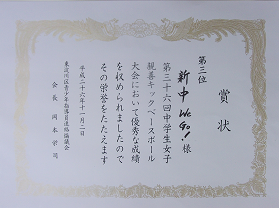 賞状
第三位
新中 We Go! 様
第三十六回中学生女子
親善キックベースボール
大会において優秀な成績
を収められましたので
その栄誉をたたえます
平成二十六年十一月二日
東淀川区青少年指導員連絡協議会
会長 岡本